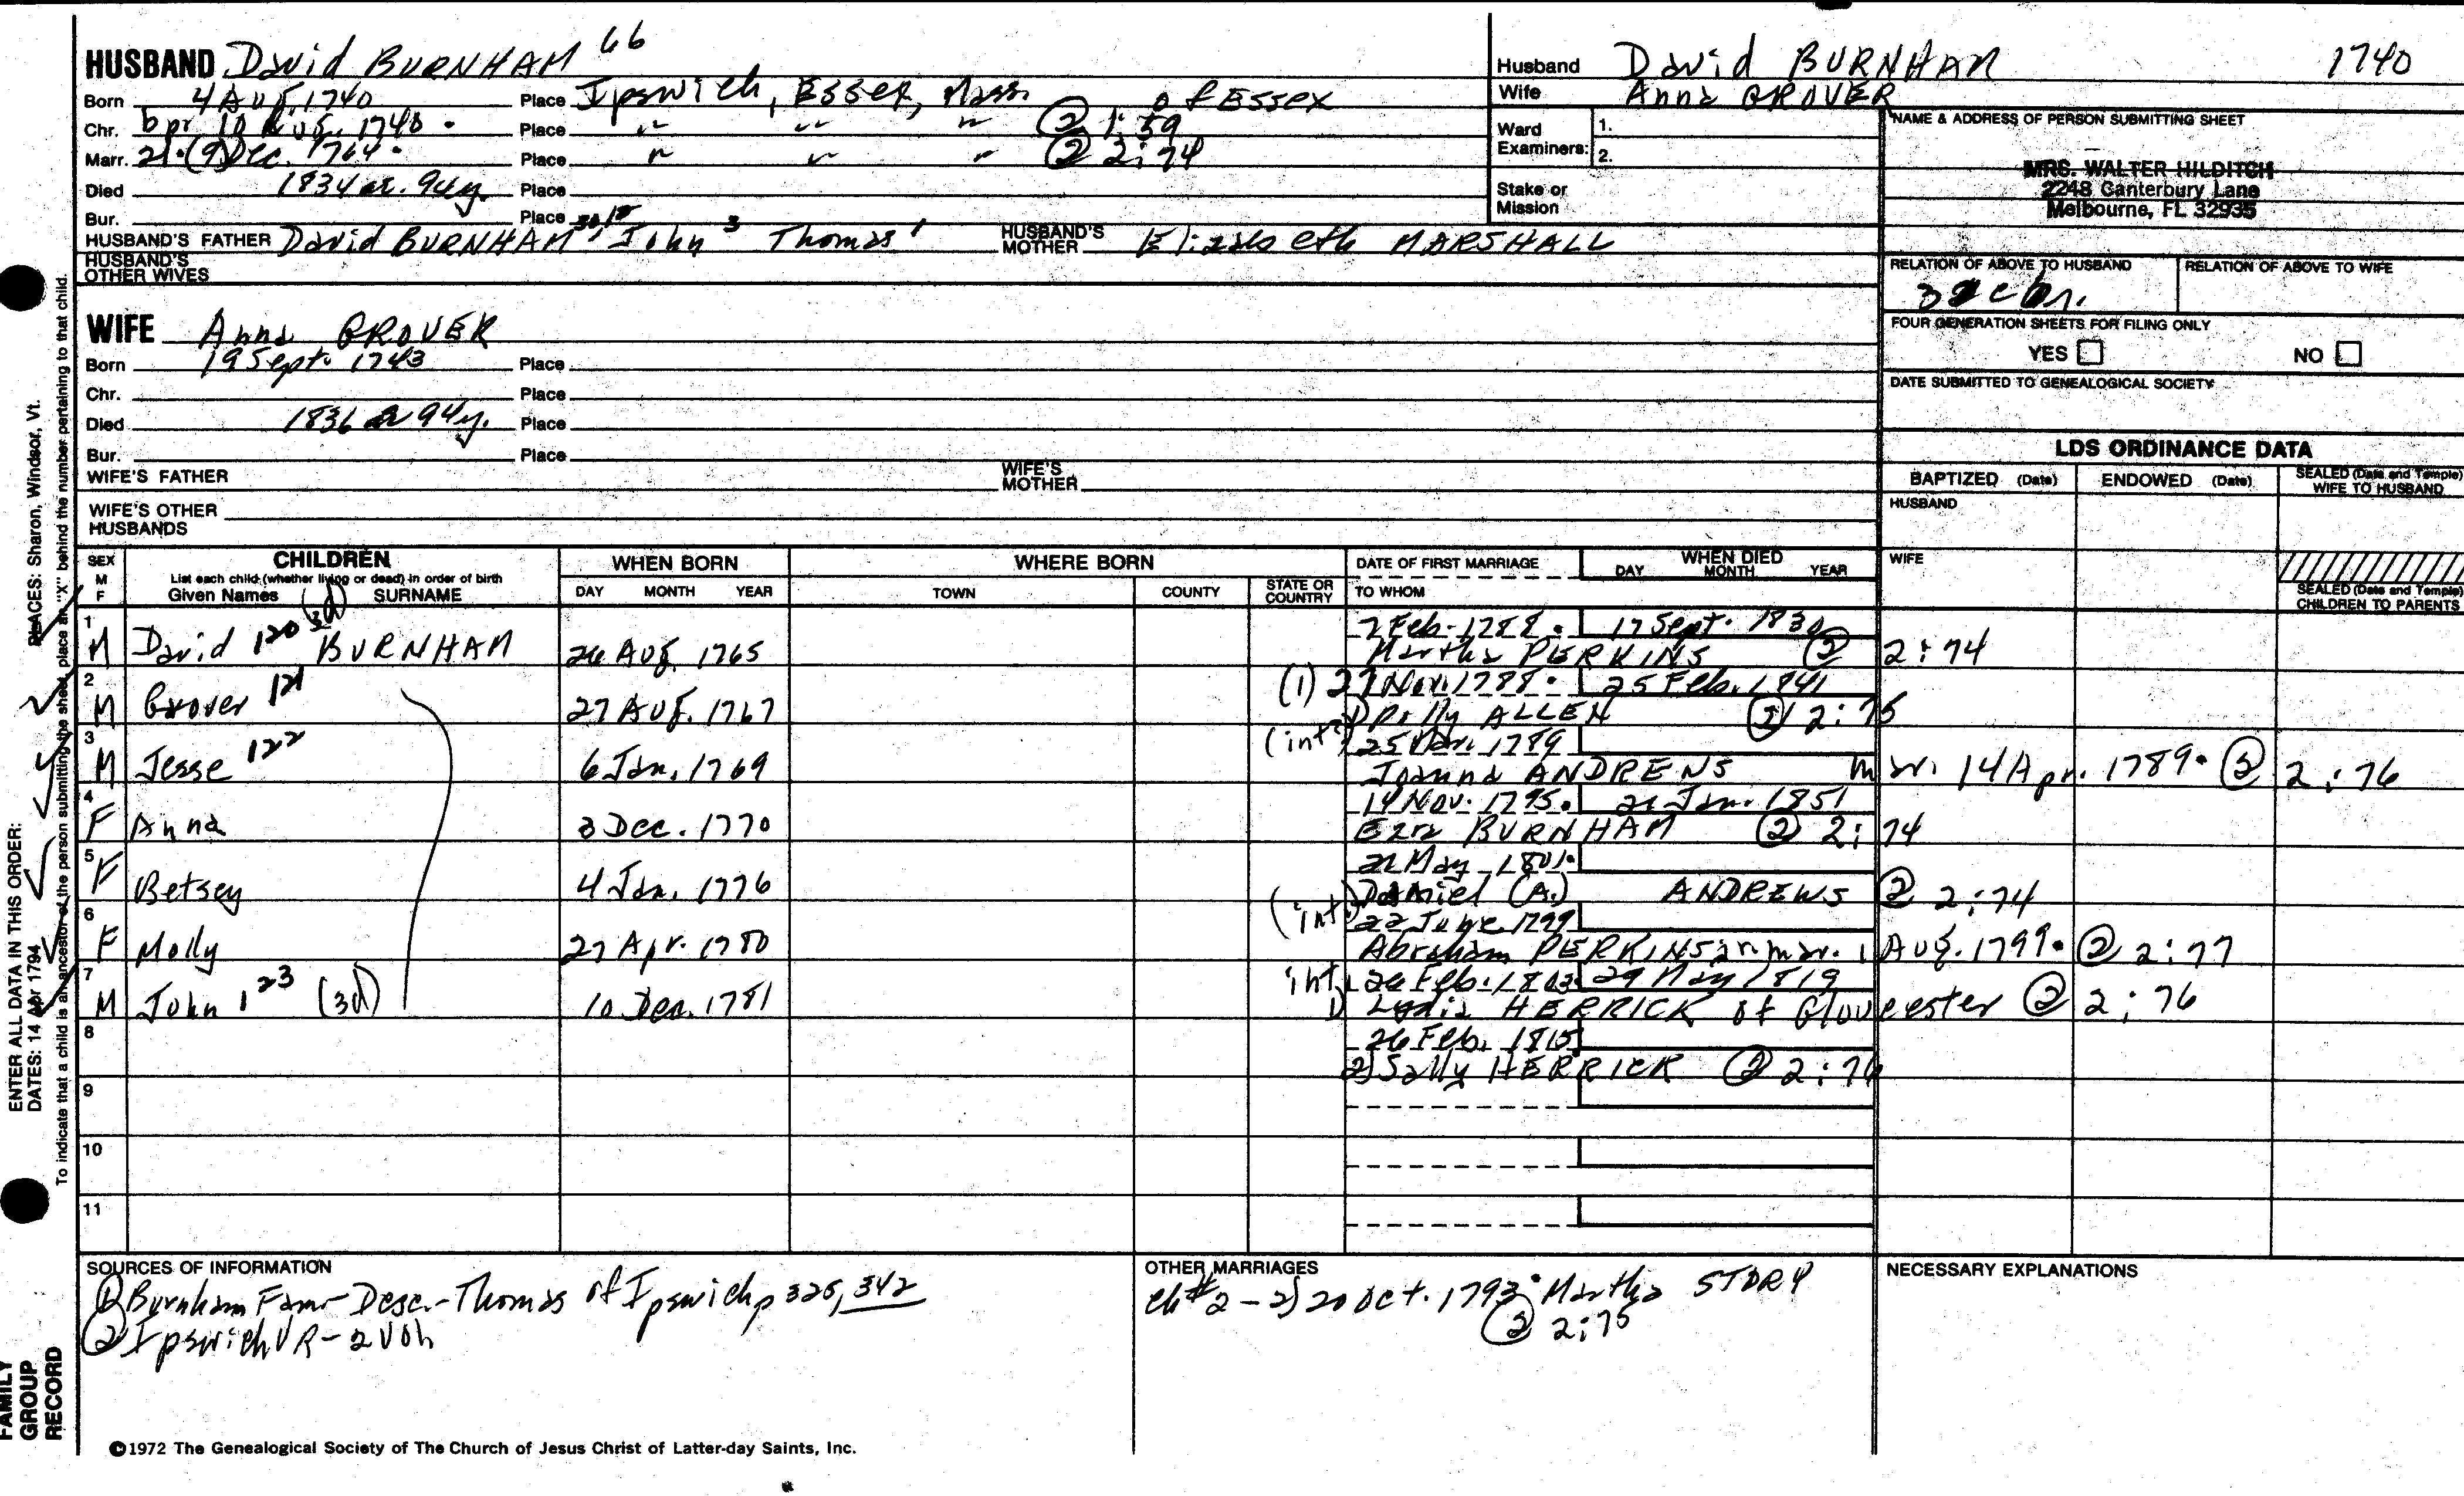 HUSBAND David BURNHAM 66
Born 4 Aug. 1740 Place Ipswich, Essex, Mass. of Essex
Chr. bpt 10 Aug. 1740. Place " " " ② 1:59
Marr. 21.(9) Dec. 1764. Place " " " ② 2:74
Died 1834 ae. 94y. Place
Bur. Place
HUSBAND'S FATHER David BURNHAM John 3 Thomas 1 HUSBAND'S MOTHER Elizabeth MARSHALL
HUSBAND'S OTHER WIVES
Husband David BURNHAM 1740
Wife Anna GROVER
Ward Examiners: 1.
2.
Stake or Mission
NAME & ADDRESS OF PERSON SUBMITTING SHEET
MRS. WALTER HILDITCH
2248 Canterbury Lane
Melbourne, FL 32935
RELATION OF ABOVE TO HUSBAND RELATION OF ABOVE TO WIFE
FOUR GENERATION SHEETS FOR FILING ONLY
YES NO
DATE SUBMITTED TO GENEALOGICAL SOCIETY
WIFE Anna GROVER
Born 19 Sept. 1743 Place
Chr. Place
Died 1836 ae 94y. Place
Bur. Place
WIFE'S FATHER WIFE'S MOTHER
WIFE'S OTHER HUSBANDS
LDS ORDINANCE DATA
BAPTIZED (Date) ENDOWED (Date) SEALED (Date and Temple) WIFE TO HUSBAND
HUSBAND
WIFE
SEALED (Date and Temple) CHILDREN TO PARENTS
SEX M F
CHILDREN
List each child (whether living or dead) in order of birth
Given Names SURNAME
WHEN BORN
DAY MONTH YEAR
WHERE BORN
TOWN COUNTY STATE OR COUNTRY
DATE OF FIRST MARRIAGE
TO WHOM
WHEN DIED
DAY MONTH YEAR
1 M David 120 (3d) BURNHAM 26 Aug. 1765 2 Feb. 1788. 17 Sept. 1830
Martha PERKINS ② 2:74
2 M Grover 121 27 Aug. 1767 (1) 27 Nov. 1788. 25 Feb. 1841
1) Polly ALLEN ② 2:75
3 M Jesse 122 6 Jan. 1769 (int) 25 Mar. 1789
Joanna ANDREWS mar. 14 Apr. 1789. ② 2:76
4 F Anna 3 Dec. 1770 14 Nov. 1795. 21 Jan. 1851
Ezra BURNHAM ② 2:74
5 F Betsey 4 Jan. 1776 21 May 1801.
Daniel (A.) ANDREWS ② 2:74
6 F Molly 27 Apr. 1780 (int) 22 June 1799
Abraham PERKINS mar. 1 Aug. 1799. ② 2:77
7 M John 123 (3d) 10 Dec. 1781 int 26 Feb. 1803. 29 May 1819
1) Lydia HERRICK of Gloucester ② 2:76
8 26 Feb. 1815
2) Sally HERRICK ② 2:76
9
10
11
SOURCES OF INFORMATION
① Burnham Fam - Desc. - Thomas of Ipswich p 325, 342
② Ipswich VR - 2 Vols
OTHER MARRIAGES
Ch #2 - 2) 20 Oct. 1793. Martha STORY
② 2:75
NECESSARY EXPLANATIONS
©1972 The Genealogical Society of The Church of Jesus Christ of Latter-day Saints, Inc.
FAMILY GROUP RECORD
ENTER ALL DATA IN THIS ORDER:
PLACES: Sharon, Windsor, Vt.
DATES: 14 Apr 1794
To indicate that a child is an ancestor of the person submitting the sheet, place an "X" behind the number pertaining to that child.